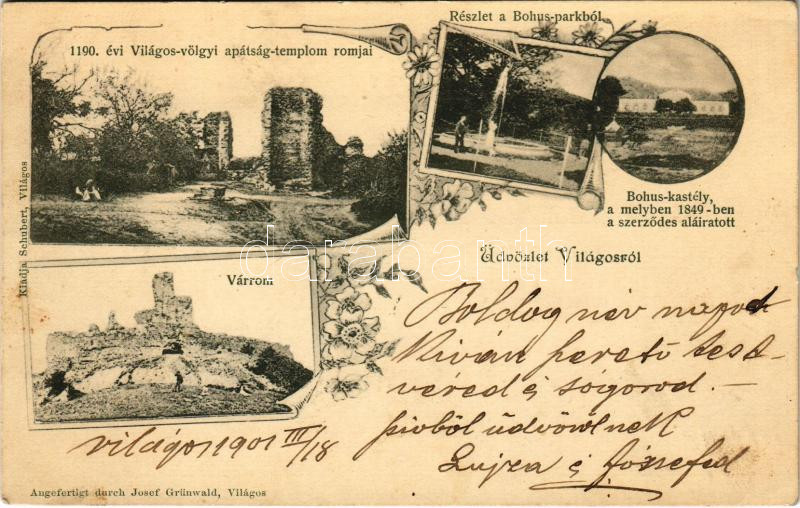 Részlet a Bohus-parkból.
1190. évi Világos-völgyi apátság-templom romjai
Bohus-kastély,
a melyben 1849-ben
a szerződes aláiratott
Kiadja Schubert, Világos
Üdvözlet Világosról
Várrom
darabanth
Boldog név napot
Kiván szerető test-
véred és sógorod. —
szivböl üdvözölnek
Lujza és Józsefed
Világos 1901 III/18
Angefertigt durch Josef Grünwald, Világos